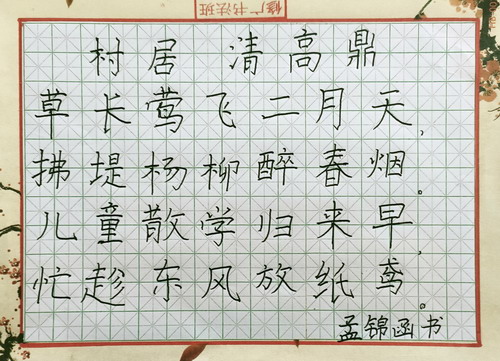 修广书法班
村居 清高鼎
草长莺飞二月天，
拂堤杨柳醉春烟。
儿童散学归来早，
忙趁东风放纸鸢。
孟锦函书